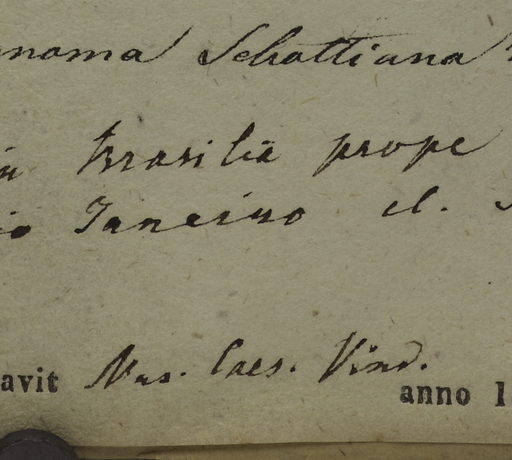 noma Schottiana
in Brasilia prope
io Janeiro cl.
avit Mus. Caes. Vind. anno 1